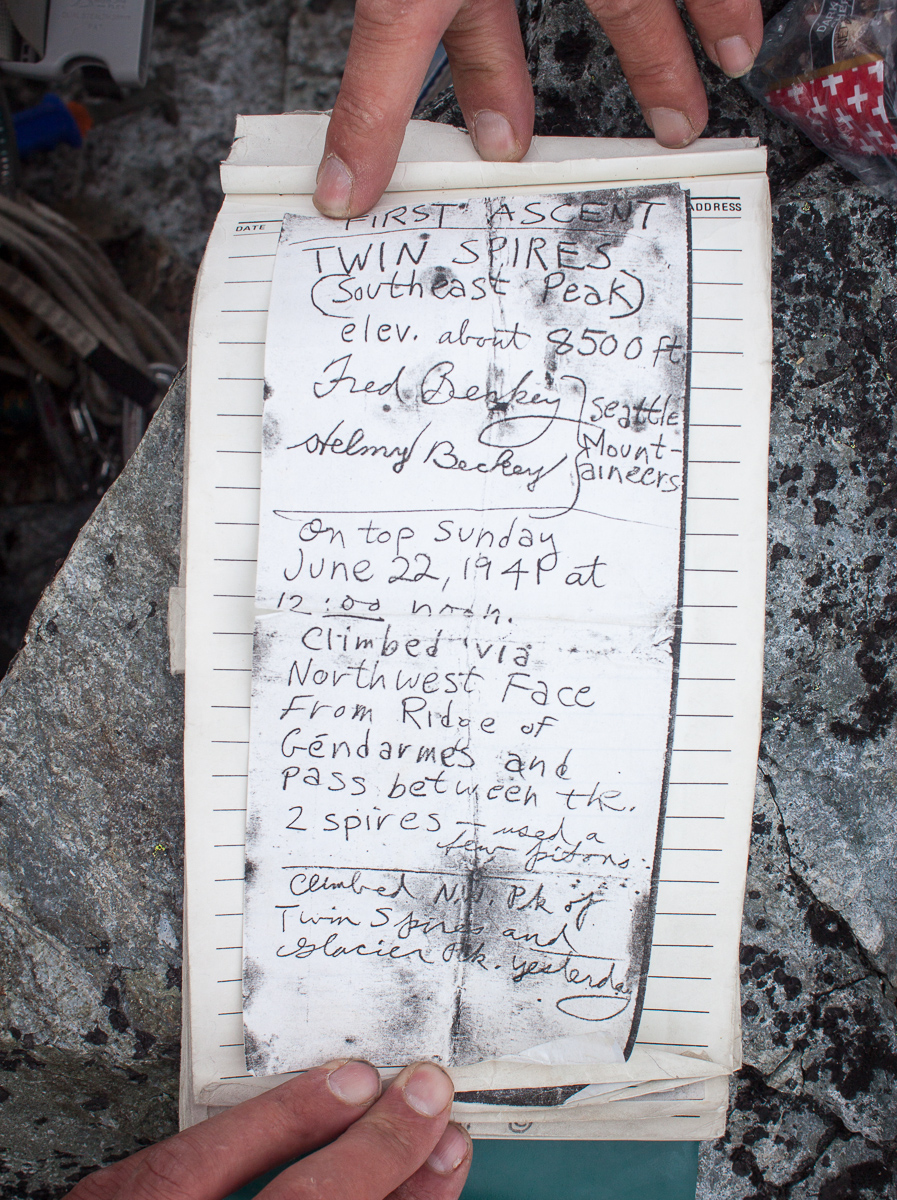 DATE
ADDRESS
FIRST ASCENT
TWIN SPIRES
(Southeast Peak)
elev. about 8500 ft
Fred Beckey
Helmy Beckey
Seattle
Mount-
aineers
On top Sunday
June 22, 1941 at
12:00 noon.
Climbed via
Northwest Face
From Ridge of
Gendarmes and
pass between the
2 spires – used a
few pitons.
Climbed N.W. Pk of
Twin Spires and
Glacier Pk. yesterday